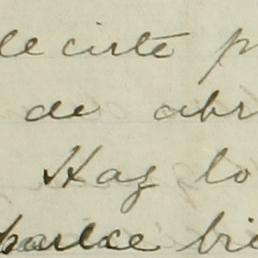 decirte p
de abr
Haz lo
parece bie